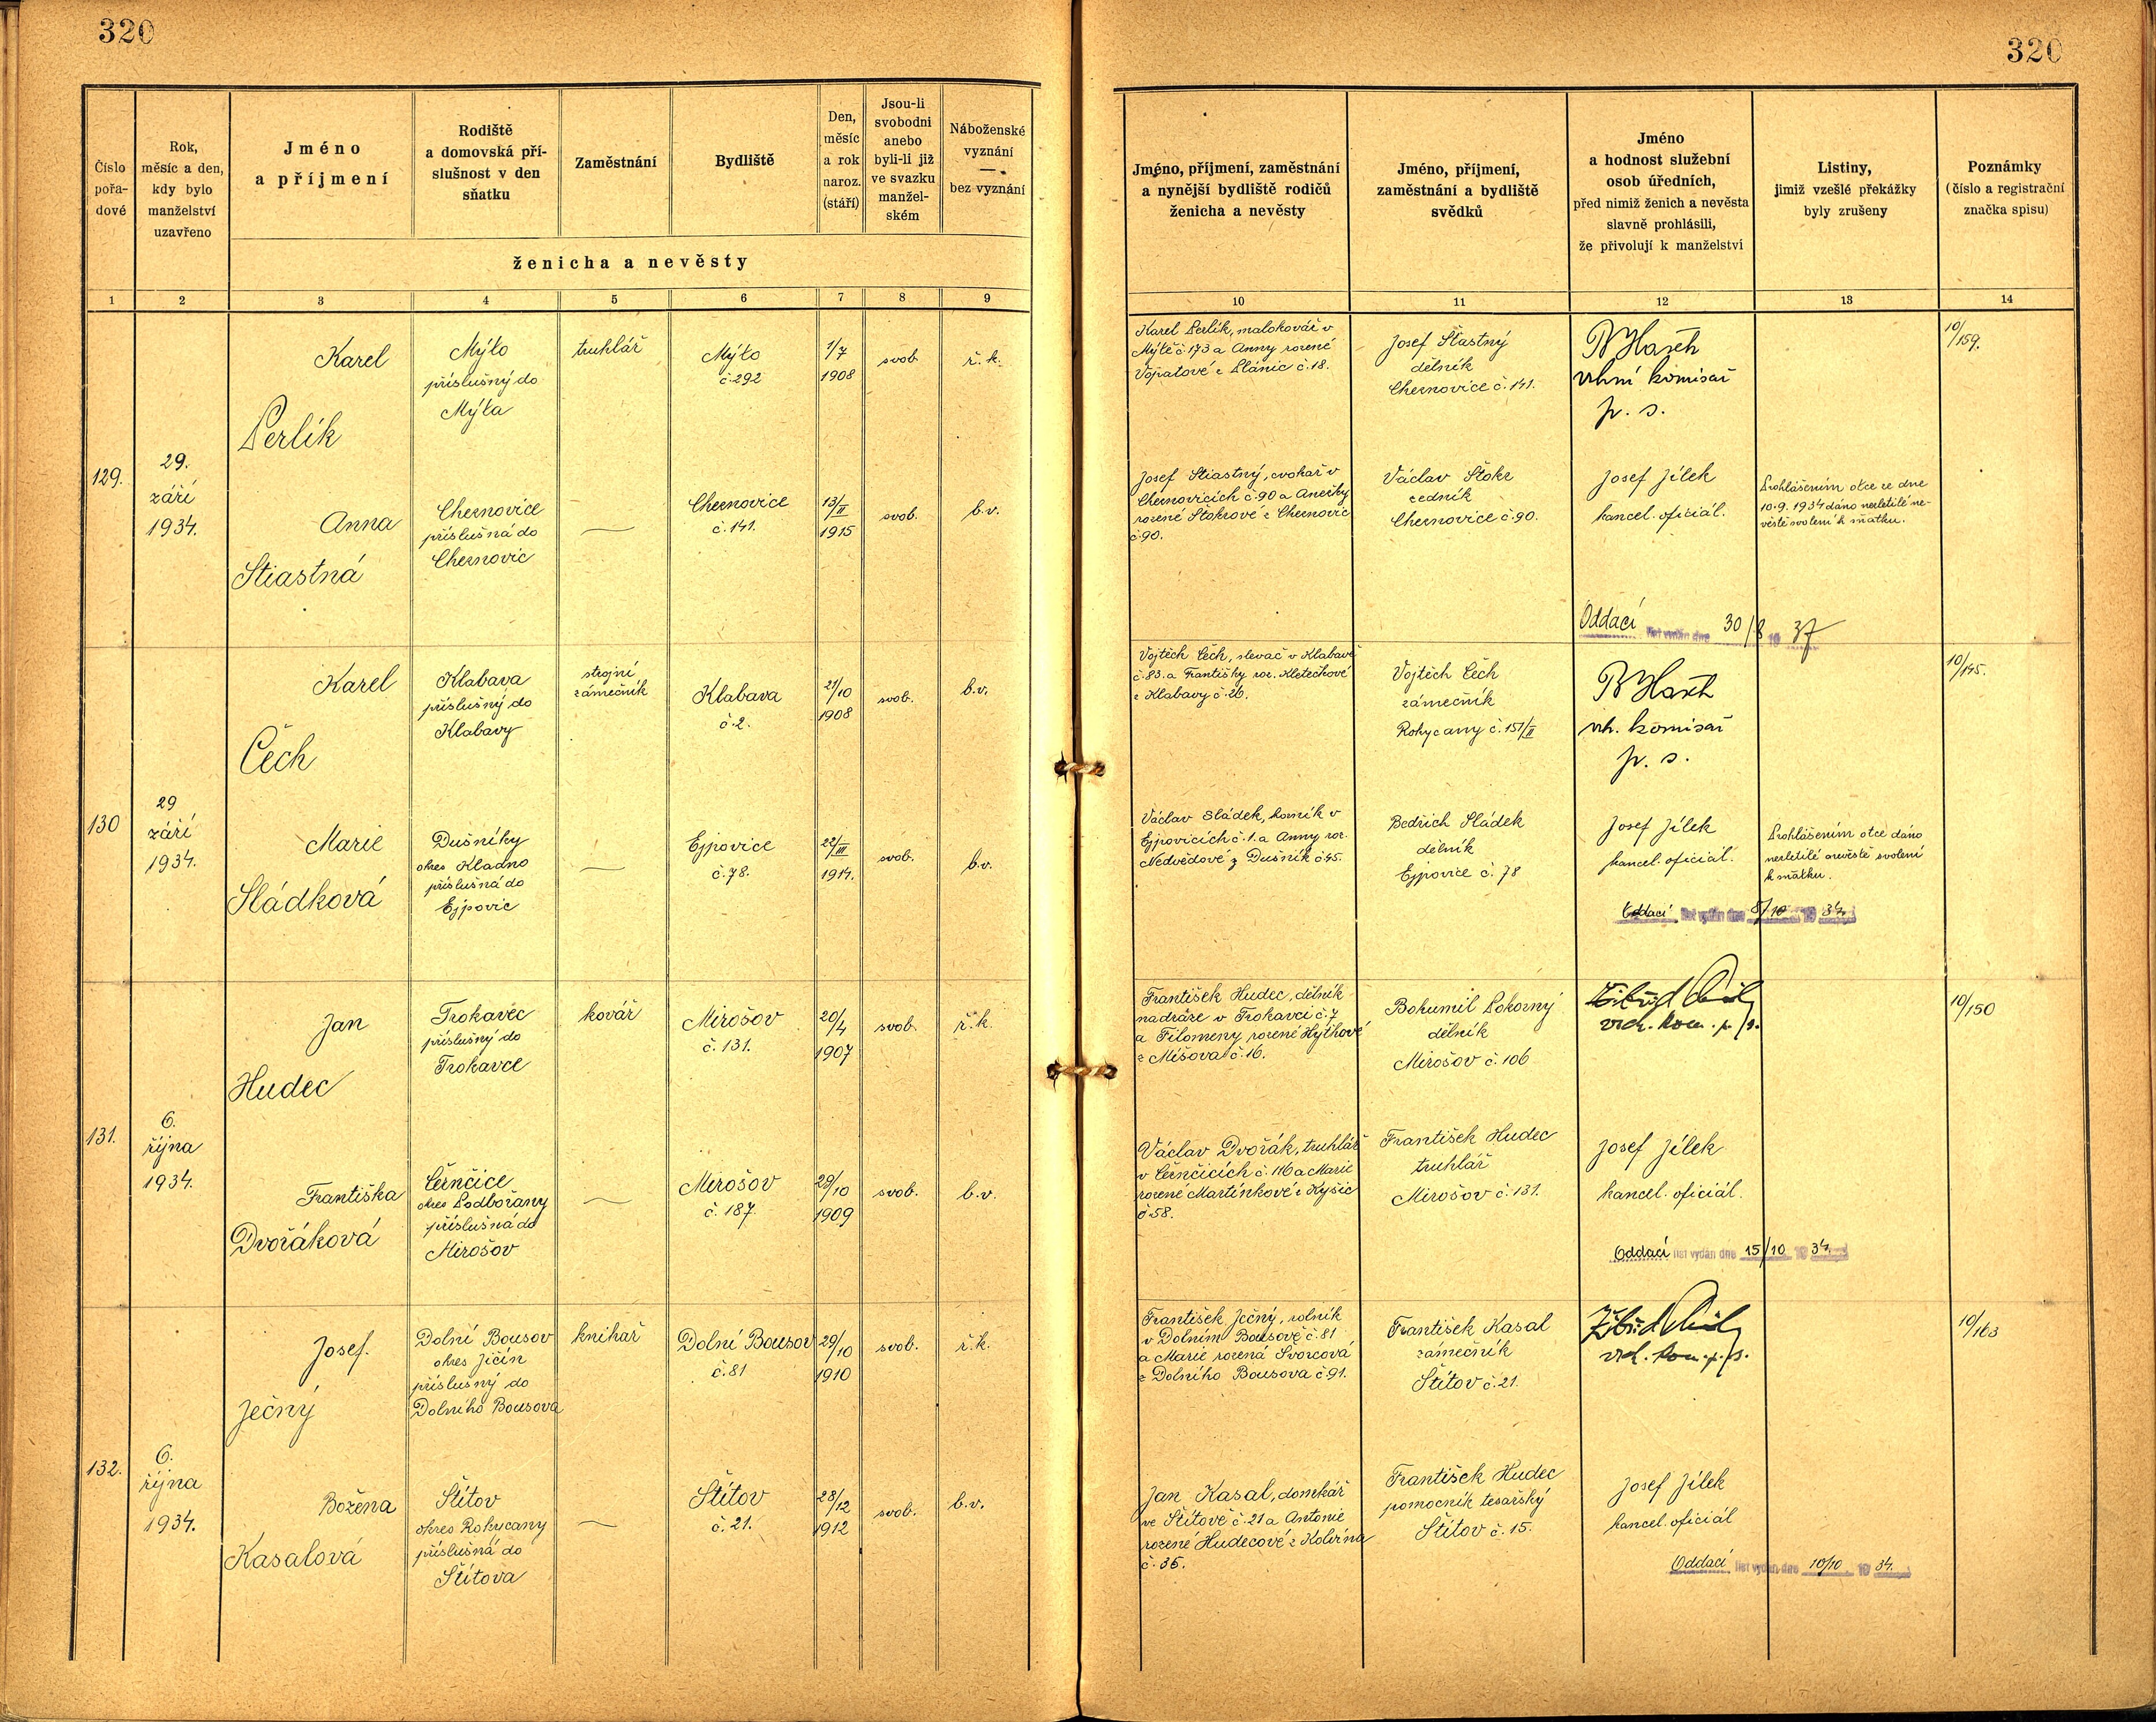 320
320
Číslo
pořa-
dové
Rok,
měsíc a den,
kdy bylo
manželství
uzavřeno
Jméno
a příjmení
Rodiště
a domovská pří-
slušnost v den
sňatku
Zaměstnání
Bydliště
Den,
měsíc
a rok
naroz.
(stáří)
Jsou-li
svobodni
anebo
byli-li již
ve svazku
manžel-
ském
Náboženské
vyznání
—
bez vyznání
ženicha a nevěsty
Jméno, příjmení, zaměstnání
a nynější bydliště rodičů
ženicha a nevěsty
Jméno, příjmení,
zaměstnání a bydliště
svědků
Jméno
a hodnost služební
osob úředních,
před nimiž ženich a nevěsta
slavně prohlásili,
že přivolují k manželství
Listiny,
jimiž vzešlé překážky
byly zrušeny
Poznámky
(číslo a registrační
značka spisu)
1 2 3 4 5 6 7 8 9
10 11 12 13 14
129.
29.
září
1934.
Karel
Perlík
Mýto
příslušný do
Mýta
truhlář
Mýto
č.292
1/7
1908
svob.
ř.k.
Karel Perlík, malokovář v
Mýtě č.173 a Anny rozené
Vopatové z Plánic č.18.
Josef Šťastný
dělník
Chernovice č.141.
vrhní komisař
p. s.
10/159.
Anna
Stiastná
Chernovice
příslušná do
Chernovic
Chernovice
č.141.
13/II
1915
svob.
b.v.
Josef Stiastný, cvokař v
Chernovicích č.90 a Anežky
rozené Štokrové z Chernovic
č.90.
Václav Štokr
zedník
Chernovice č.90.
Josef Jílek
kancel. oficiál.
Prohlášením otce ze dne
10.9.1934 dáno nezletilé ne-
věstě svolení k sňatku.
Oddací list vydán dne 30/8 19 37
130
29
září
1934.
Karel
Čech
Klabava
příslušný do
Klabavy
strojní
zámečník
Klabava
č.2.
21/10
1908
svob.
b.v.
Vojtěch Čech, slevač v Klabavě
č.83. a Františky roz. Kletečkové
z Klabavy č.26.
Vojtěch Čech
zámečník
Rokycany č.151/II
vrh. komisař
p. s.
10/145.
Marie
Sládková
Dušníky
okres Kladno
příslušná do
Ejpovic
Ejpovice
č.78.
22/III
1914.
svob.
b.v.
Václav Sládek, horník v
Ejpovicích č.1. a Anny roz.
Nedvědové z Dušník č.45.
Bedřich Sládek
dělník
Ejpovice č.78
Josef Jílek
kancel. oficiál.
Prohlášením otce dáno
nezletilé nevěstě svolení
k sňatku.
Oddací list vydán dne 8/10 19 34.
131.
6.
října
1934.
Jan
Hudec
Trokavec
příslušný do
Trokavce
kovář
Mirošov
č.131.
20/4
1907
svob.
ř.k.
František Hudec, dělník
nadráze v Trokavci č.7
a Filomeny rozené Hýthové
z Míšova č.16.
Bohumil Pokorný
dělník
Mirošov č.106
vrch. kom. p. s.
10/150
Františka
Dvořáková
Černčice
okres Podbořany
příslušná do
Mirošov
Mirošov
č.187.
29/10
1909
svob.
b.v.
Václav Dvořák, truhlář
v Černčicích č.116 a Marie
rozené Martínkové z Kyšic
č.58.
František Hudec
truhlář
Mirošov č.131.
Josef Jílek
kancel. oficiál.
Oddací list vydán dne 15/10 19 34.
132.
6.
října
1934.
Josef.
Ječný
Dolní Bousov
okres Jičín
příslušný do
Dolního Bousova
knihař
Dolní Bousov
č.81
29/10
1910
svob.
ř.k.
František Ječný, rolník
v Dolním Bousově č.81
a Marie rozená Švorcová
z Dolního Bousova č.91.
František Kasal
zámečník
Štítov č.21.
vrch. kom. p. s.
10/163
Božena
Kasalová
Štítov
okres Rokycany
příslušná do
Štítova
Štítov
č.21.
28/12
1912
svob.
b.v.
Jan Kasal, domkář
ve Štítově č.21 a Antonie
rozené Hudecové z Kolvína
č.35.
František Hudec
pomocník tesařský
Štítov č.15.
Josef Jílek
kancel. oficiál
Oddací list vydán dne 10/10 19 34.